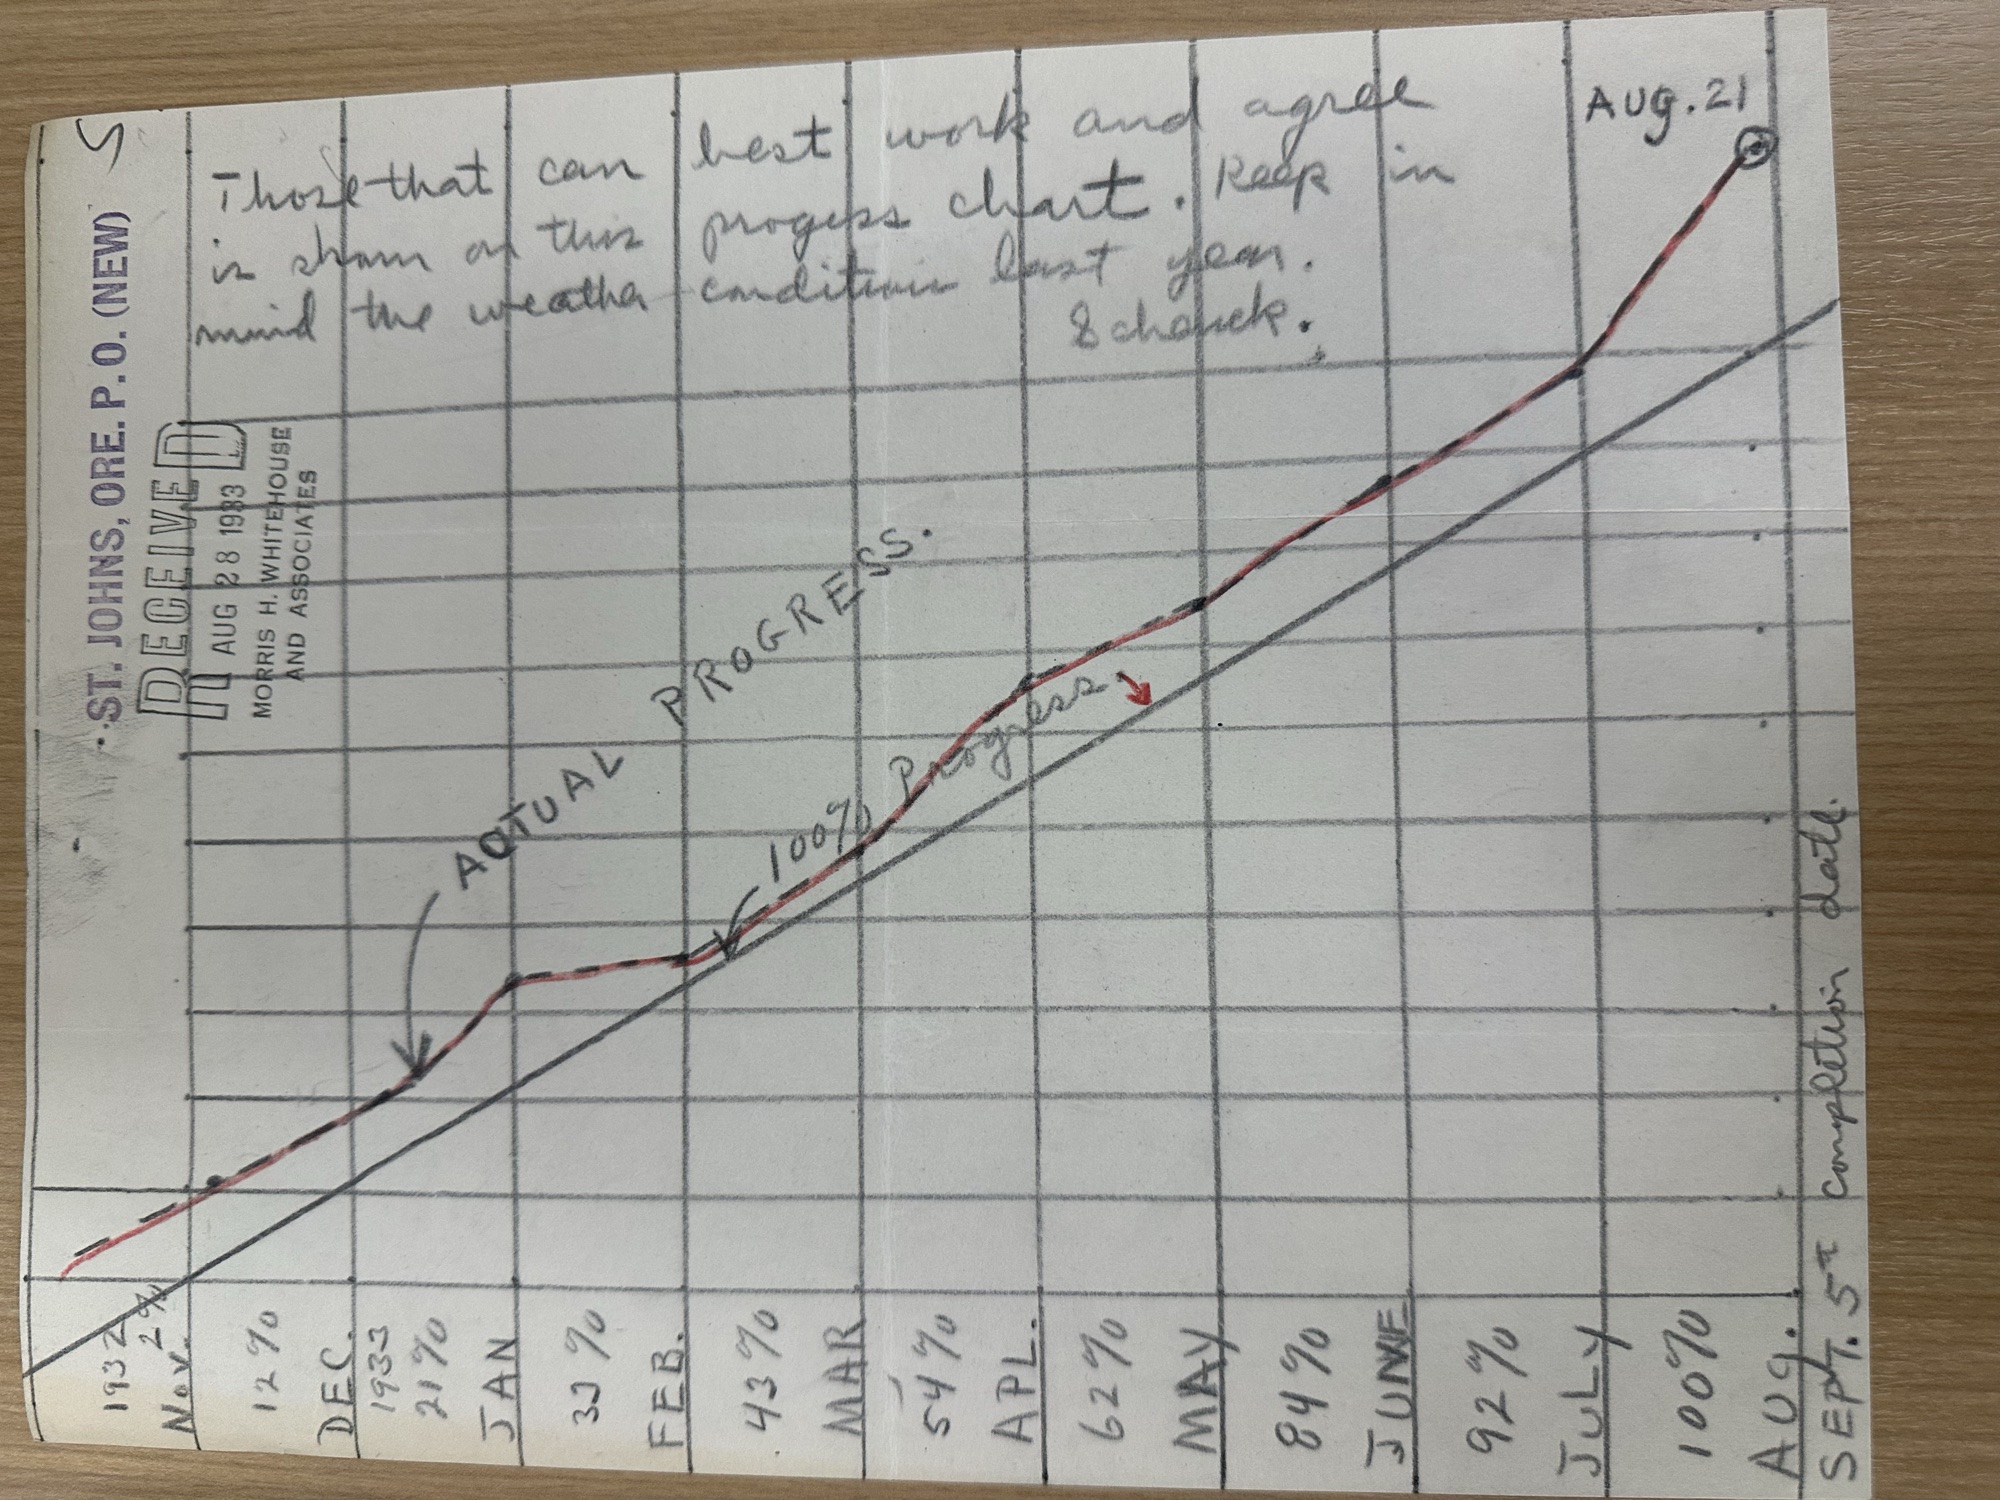 Those that can best work and agree
is shown on this progess chart. Keep in
mind the weather condition last year.
Schauck.
AUG. 21
ST. JOHNS, ORE. P. O. (NEW)
RECEIVED
AUG 28 1933
MORRIS H. WHITEHOUSE
AND ASSOCIATES
ACTUAL PROGRESS.
100% Progress.
1932
2%
NOV.
12%
DEC.
1933
21%
JAN
33%
FEB.
43%
MAR
54%
APL.
62%
MAY
84%
JUNE
92%
JULY
100%
AUG.
SEPT. 5th completion date.